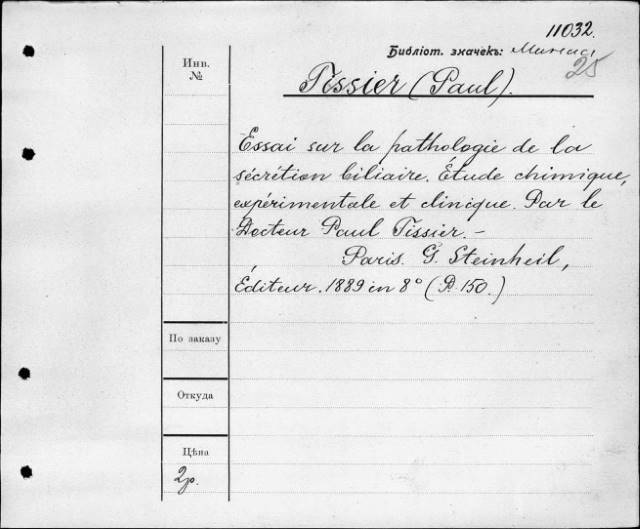 11032.
Библіот. значекъ:
25
Инв.
№
Tissier (Paul).
Essai sur la pathologie de la
sécrétion biliaire. Étude chimique,
expérimentale et clinique. Par le
Docteur Paul Tissier. –
Paris. G. Steinheil,
Éditeur. 1889 in 8° (P. 150.)
По заказу
Откуда
Цѣна
2р.